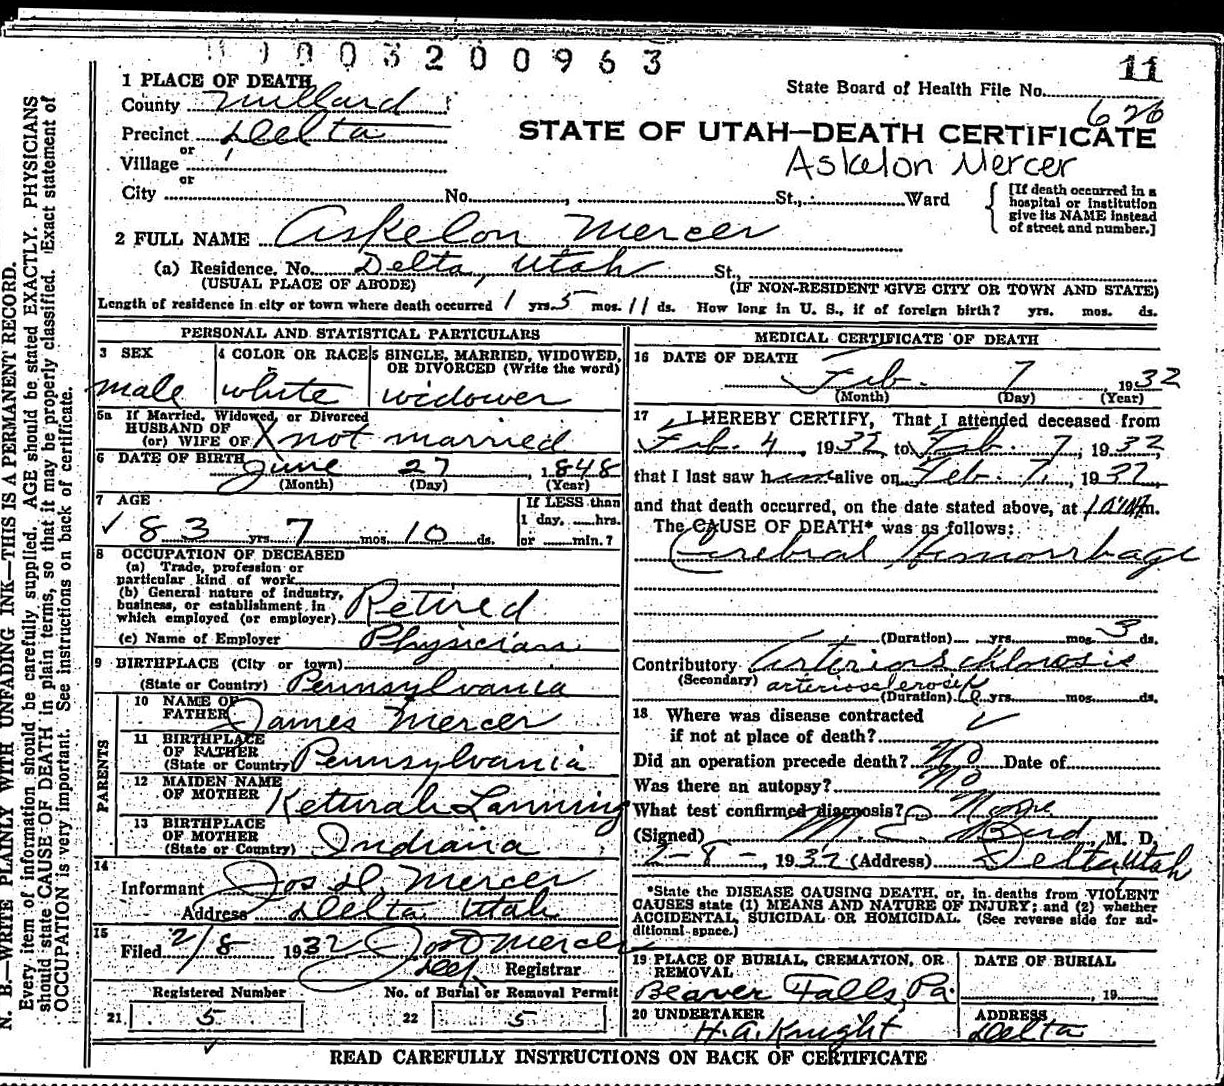 0003200963
11
State Board of Health File No.
626
1 PLACE OF DEATH
County Millard
Precinct Delta
or
Village
or
City No. , St., Ward
STATE OF UTAH—DEATH CERTIFICATE
Askelon Mercer
[If death occurred in a
hospital or institution
give its NAME instead
of street and number.]
2 FULL NAME Askelon Mercer
(a) Residence. No. Delta, Utah St.,
(USUAL PLACE OF ABODE) (IF NON-RESIDENT GIVE CITY OR TOWN AND STATE)
Length of residence in city or town where death occurred 1 yrs. 5 mos. 11 ds. How long in U. S., if of foreign birth? yrs. mos. ds.
PERSONAL AND STATISTICAL PARTICULARS
3 SEX
male
4 COLOR OR RACE
white
5 SINGLE, MARRIED, WIDOWED,
OR DIVORCED (Write the word)
widower
5a If Married, Widowed, or Divorced
HUSBAND OF
(or) WIFE OF X not married
6 DATE OF BIRTH June 27, 1848
(Month) (Day) (Year)
7 AGE
83 yrs. 7 mos. 10 ds.
If LESS than
1 day, hrs.
or min.?
8 OCCUPATION OF DECEASED
(a) Trade, profession or
particular kind of work
(b) General nature of industry,
business, or establishment in
which employed (or employer) Retired
(c) Name of Employer Physician
9 BIRTHPLACE (City or town)
(State or Country) Pennsylvania
PARENTS
10 NAME OF
FATHER James Mercer
11 BIRTHPLACE
OF FATHER
(State or Country) Pennsylvania
12 MAIDEN NAME
OF MOTHER Keturah Lanning
13 BIRTHPLACE
OF MOTHER
(State or Country) Indiana
14
Informant Jos D. Mercer
Address Delta Utah
15
Filed 2/8 1932 Jos D Mercer
Registrar
Registered Number No. of Burial or Removal Permit
21 5 22 5
MEDICAL CERTIFICATE OF DEATH
16 DATE OF DEATH
Feb. 7, 1932
(Month) (Day) (Year)
17 I HEREBY CERTIFY, That I attended deceased from
Feb. 4, 1932, to Feb. 7, 1932,
that I last saw h alive on Feb. 7, 1932,
and that death occurred, on the date stated above, at m.
The CAUSE OF DEATH* was as follows:
Cerebral Hemorrhage
(Duration) yrs. mos. 3 ds.
Contributory Arteriosclerosis
(Secondary) arteriosclerosis
(Duration) yrs. mos. ds.
18 Where was disease contracted
if not at place of death?
Did an operation precede death? No Date of
Was there an autopsy? No
What test confirmed diagnosis? None
(Signed) M. E. Bird, M. D.
2-8-, 1932 (Address) Delta, Utah
*State the DISEASE CAUSING DEATH, or, in deaths from VIOLENT
CAUSES state (1) MEANS AND NATURE OF INJURY; and (2) whether
ACCIDENTAL, SUICIDAL OR HOMICIDAL. (See reverse side for ad-
ditional space.)
19 PLACE OF BURIAL, CREMATION, OR
REMOVAL
Beaver Falls, Pa.
DATE OF BURIAL
, 19
20 UNDERTAKER
H. A. Knight
ADDRESS
Delta
READ CAREFULLY INSTRUCTIONS ON BACK OF CERTIFICATE
N. B.—WRITE PLAINLY WITH UNFADING INK—THIS IS A PERMANENT RECORD.
Every item of information should be carefully supplied. AGE should be stated EXACTLY. PHYSICIANS
should state CAUSE OF DEATH in plain terms, so that it may be properly classified. Exact statement of
OCCUPATION is very important. See instructions on back of certificate.